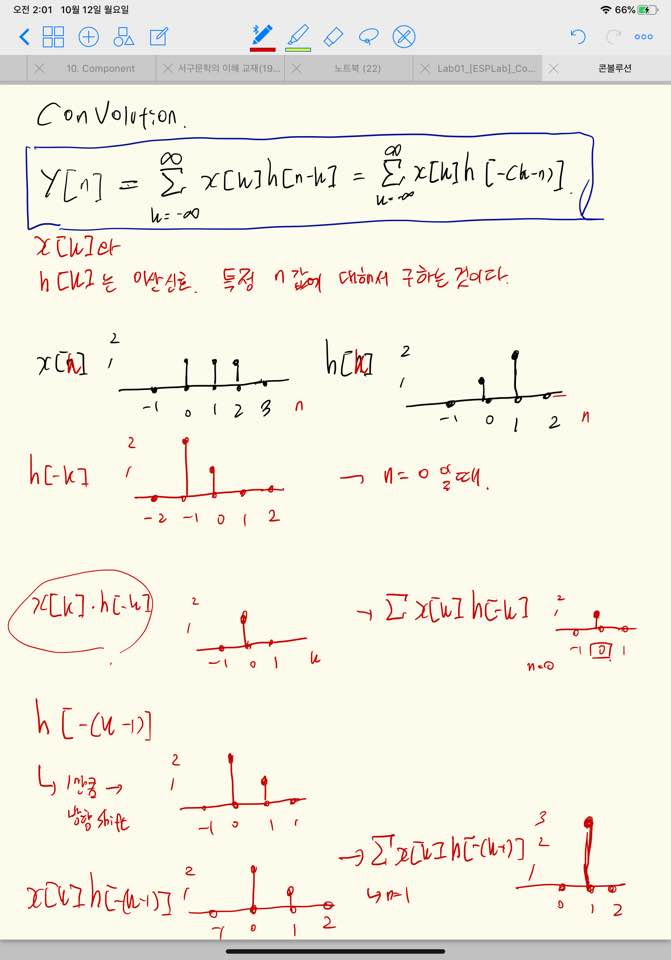 오전 2:01 10월 12일 월요일 66%
10. Component 서구문학의 이해 교재(19... 노트북 (22) Lab01_[ESPLab]_Co... 콘볼루션
Convolution.
Y[n] = ∞ Σ k=-∞ x[k]h[n-k] = ∞ Σ k=-∞ x[k]h[-(k-n)].
x[k]와
h[k]는 이산신호. 특정 n값에 대해서 구하는 것이다.
x[k] 2 1 -1 0 1 2 3 n
h[k] 2 1 -1 0 1 2 n
h[-k] 2 1 -2 -1 0 1 2
→ n=0 일 때.
x[k]·h[-k] 2 1 -1 0 1 k
→ Σ x[k]h[-k] 2 1 -1 0 1
n=0
h[-(k-1)]
↳ 1만큼 →
방향 shift
2 1 -1 0 1
x[k]h[-(k-1)] 2 1 -1 0 1 2
→ Σ x[k]h[-(k-1)] 3 2 1 0 1 2
↳ n=1